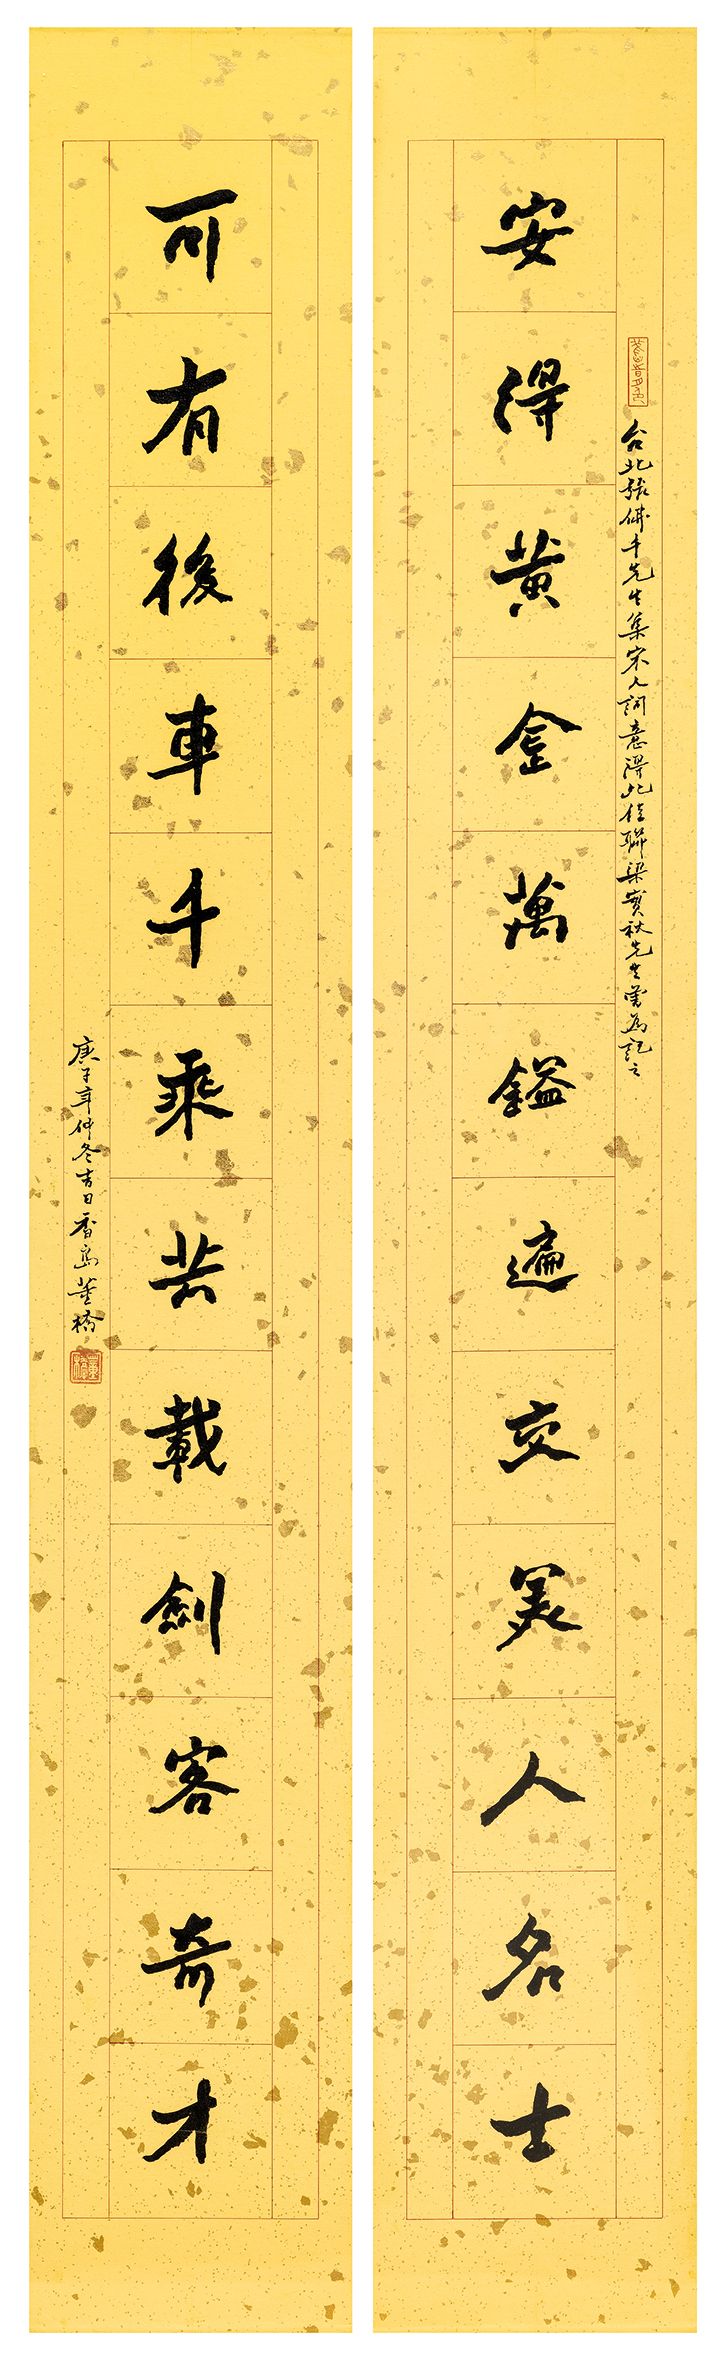 安得黃金萬鎰遍交美人名士
台北張佛千先生集宋人詞意得此佳聯梁實秋先生嘗為記之
可有後車千乘共載劍客奇才
庚子年仲冬吉日香島董橋
董橋